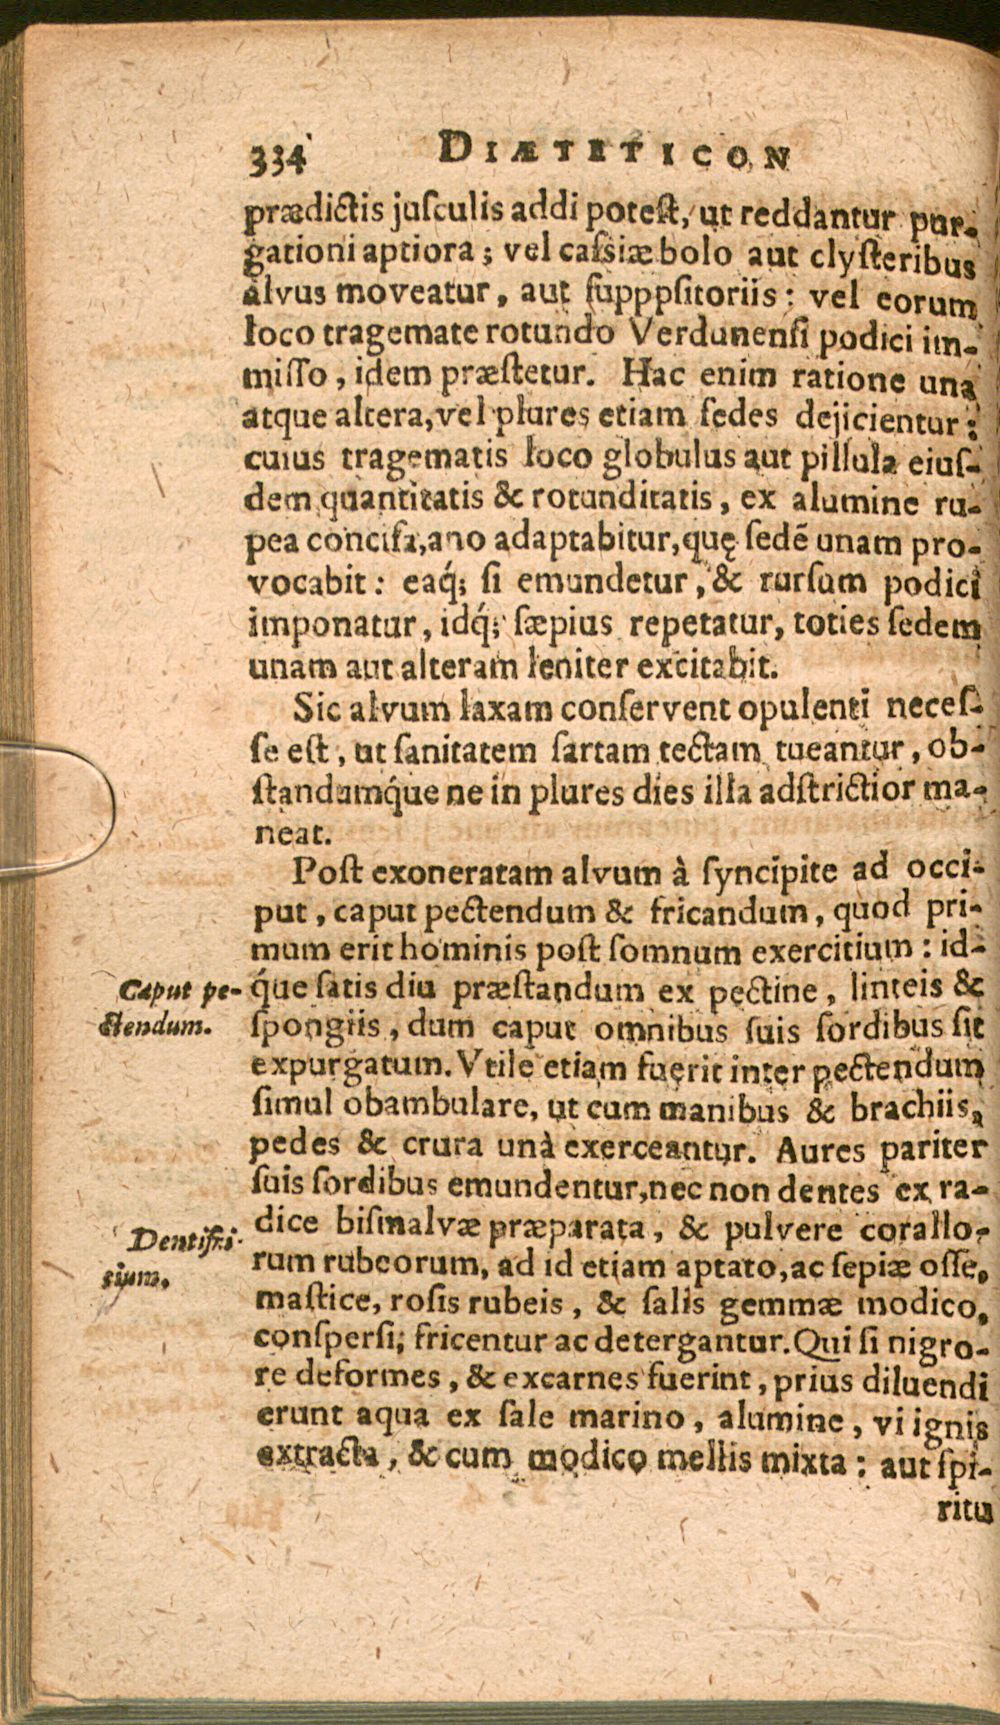 334 DIÆTETICON
prædictis juſculis addi poteſt, ut reddantur pur-
gationi aptiora; vel caſsiæ bolo aut clyſteribus
alvus moveatur, aut ſupppſitoriis: vel eorum
loco tragemate rotundo Verdunenſi podici im-
miſſo, idem præſtetur. Hac enim ratione una
atque altera, vel plures etiam ſedes dejicientur:
cuius tragematis loco globulus aut pillula eiuſ-
dem quantitatis & rotunditatis, ex alumine ru-
pea concisa, ano adaptabitur, quę ſedē unam pro-
vocabit: eaq́; ſi emundetur, & rurſum podici
imponatur, idq́; ſæpius repetatur, toties ſedem
unam aut alteram leniter excitabit.
Sic alvum laxam conſervent opulenti neceſ-
ſe eſt, ut ſanitatem ſartam tectam tueantur, ob-
ſtandumq́ue ne in plures dies illa adſtrictior ma-
neat.
Poſt exoneratam alvum à ſyncipite ad occi-
put, caput pectendum & fricandum, quod pri-
mum erit hominis poſt ſomnum exercitium: id-
q́ue ſatis diu præſtandum ex pectine, linteis &
ſpongiis, dum caput omnibus ſuis ſordibus ſit
expurgatum. Vtile etiam fuerit inter pectendum
ſimul obambulare, ut cum manibus & brachiis,
pedes & crura unà exerceantur. Aures pariter
ſuis ſordibus emundentur, nec non dentes ex ra-
dice biſmalvæ præparata, & pulvere corallo-
rum rubeorum, ad id etiam aptato, ac ſepiæ oſſe,
maſtice, roſis rubeis, & ſalis gemmæ modico,
conſperſi; fricentur ac detergantur. Qui ſi nigro-
re deformes, & excarnes fuerint, prius diluendi
erunt aqua ex ſale marino, alumine, vi ignis
extracta, & cum modico mellis mixta: aut ſpi-
ritu
Caput pe-
ctendum.
Dentifri-
cium.